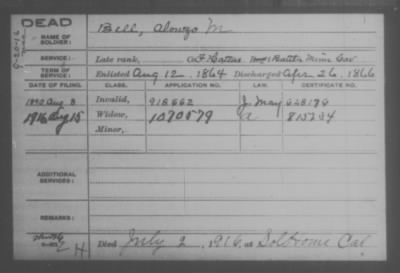 DEAD
NAME OF SOLDIER: Bell, Alonzo M
SERVICE: Late rank, Co. F Hattus Battn Minn Cav
TERM OF SERVICE: Enlisted Aug 12, 1864 Discharged Apr 26, 1866
DATE OF FILING. CLASS. APPLICATION NO. LAW. CERTIFICATE NO.
1890 Aug 8 Invalid, 918662 J. May 628170
1916 Aug 15 Widow, 1070579 815734
Minor,
ADDITIONAL SERVICES:
REMARKS:
Died July 2, 1916, at Cal